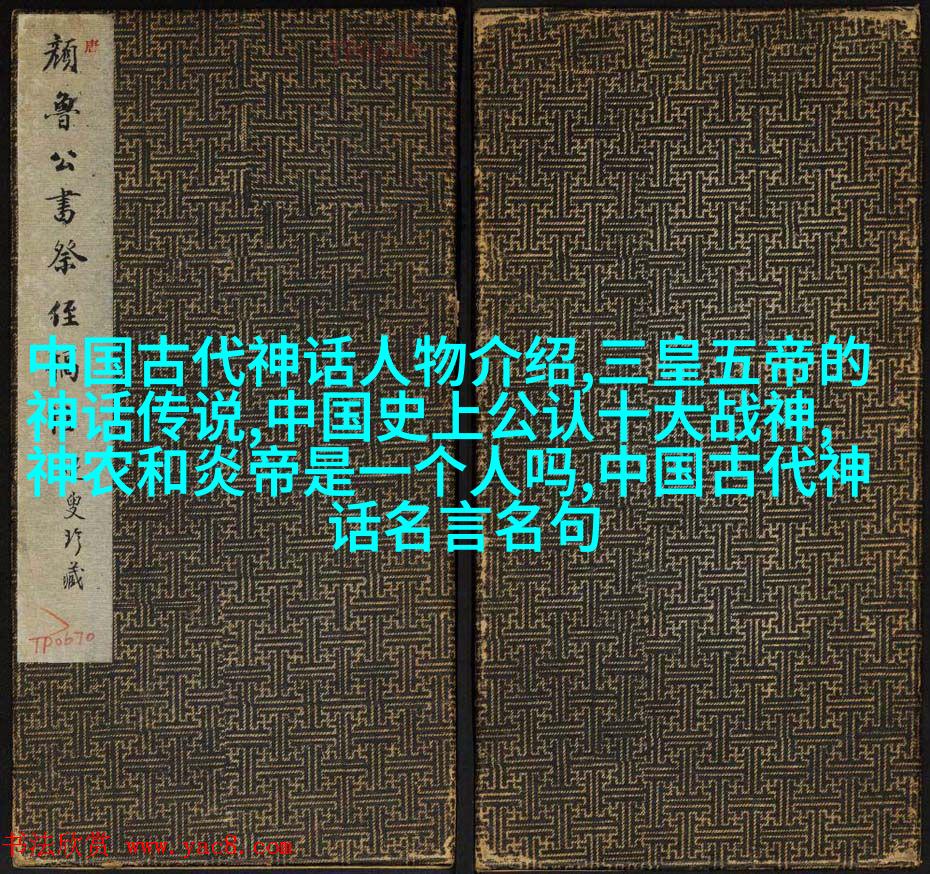 唐
顔魯公書祭侄
叟珍藏
TP0670
中国古代神话人物介绍,三皇五帝的
神话传说,中国史上公认十大战神,
神农和炎帝是一个人吗,中国古代神
话名言名句
书法欣赏 www.yac8.com